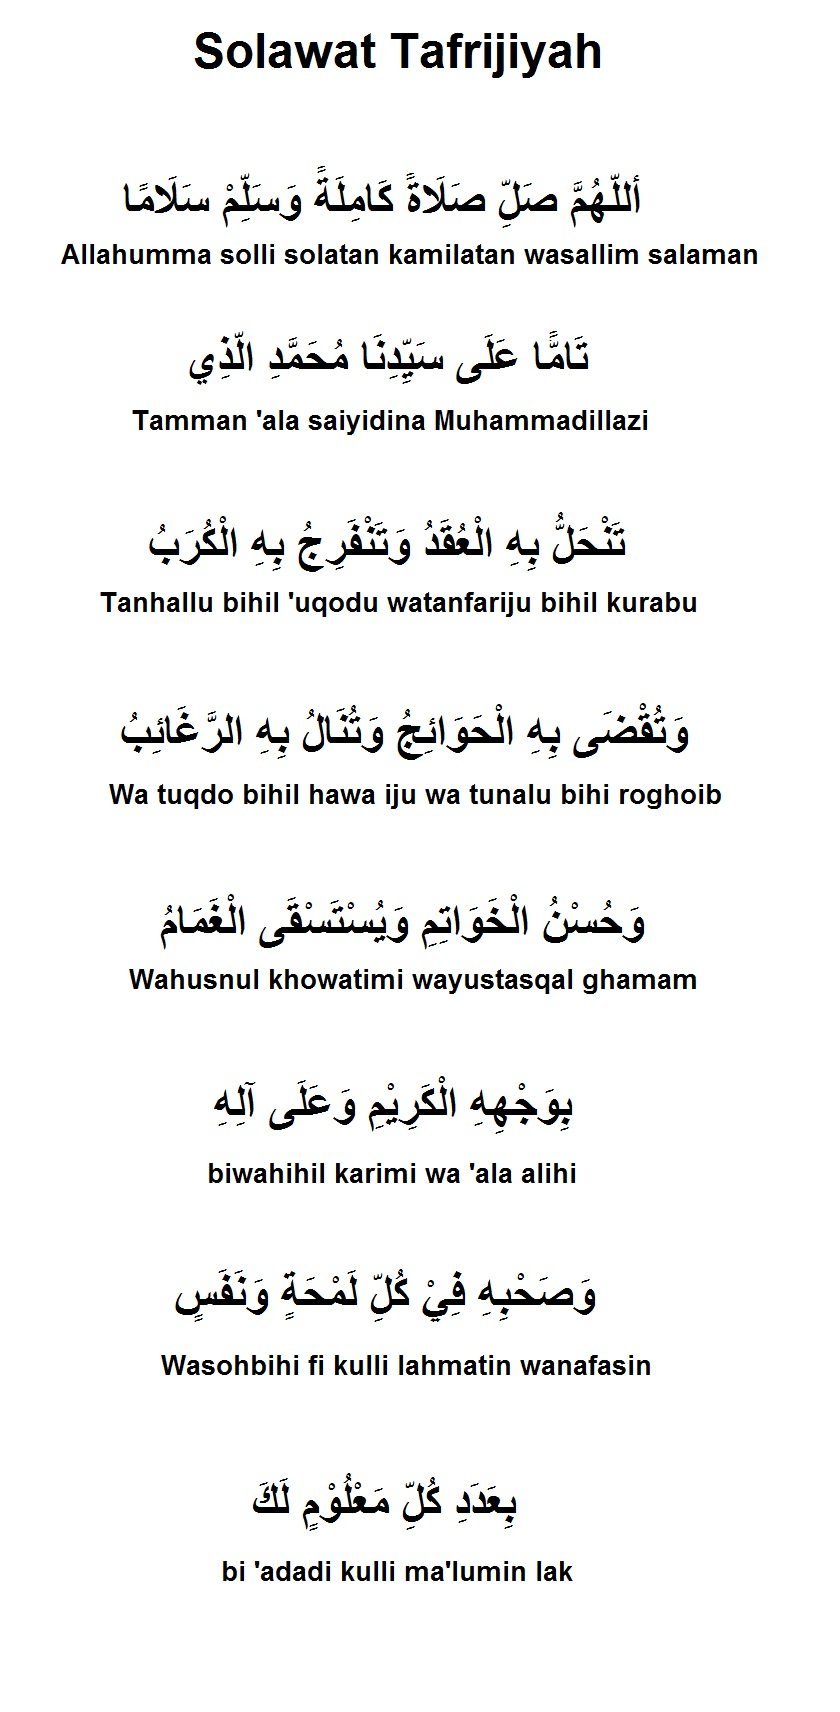 Solawat Tafrijiyah
أللّهُمَّ صَلِّ صَلَاةً كَامِلَةً وَسَلِّمْ سَلَامًا
Allahumma solli solatan kamilatan wasallim salaman
تَامًّا عَلَى سَيِّدِنَا مُحَمَّدِ الّذِي
Tamman 'ala saiyidina Muhammadillazi
تَنْحَلُّ بِهِ الْعُقَدُ وَتَنْفَرِجُ بِهِ الْكُرَبُ
Tanhallu bihil 'uqodu watanfariju bihil kurabu
وَتُقْضَى بِهِ الْحَوَائِجُ وَتُنَالُ بِهِ الرَّغَائِبُ
Wa tuqdo bihil hawa iju wa tunalu bihi roghoib
وَحُسْنُ الْخَوَاتِمِ وَيُسْتَسْقَى الْغَمَامُ
Wahusnul khowatimi wayustasqal ghamam
بِوَجْهِهِ الْكَرِيْمِ وَعَلَى آلِهِ
biwahihil karimi wa 'ala alihi
وَصَحْبِهِ فِيْ كُلِّ لَمْحَةٍ وَنَفَسٍ
Wasohbihi fi kulli lahmatin wanafasin
بِعَدَدِ كُلِّ مَعْلُوْمٍ لَكَ
bi 'adadi kulli ma'lumin lak